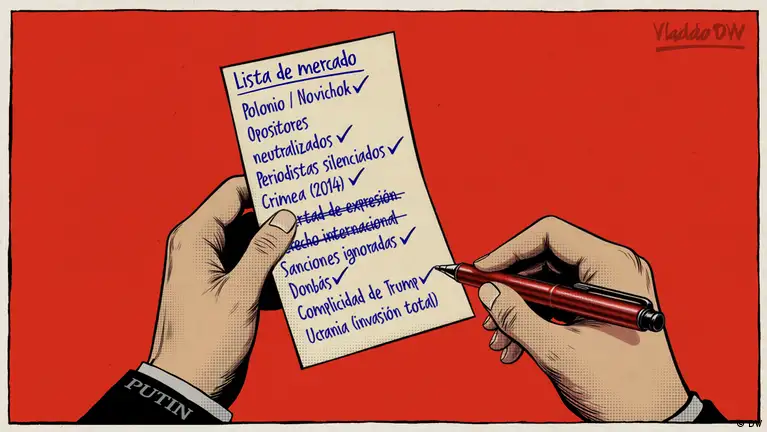 Vladdo DW
Lista de mercado
Polonio / Novichok ✓
Opositores
neutralizados ✓
Periodistas silenciados ✓
Crimea (2014) ✓
rtad de expresión
recho internacional
Sanciones ignoradas ✓
Donbás ✓
Complicidad de Trump ✓
Ucrania (invasión total)
PUTIN
© DW